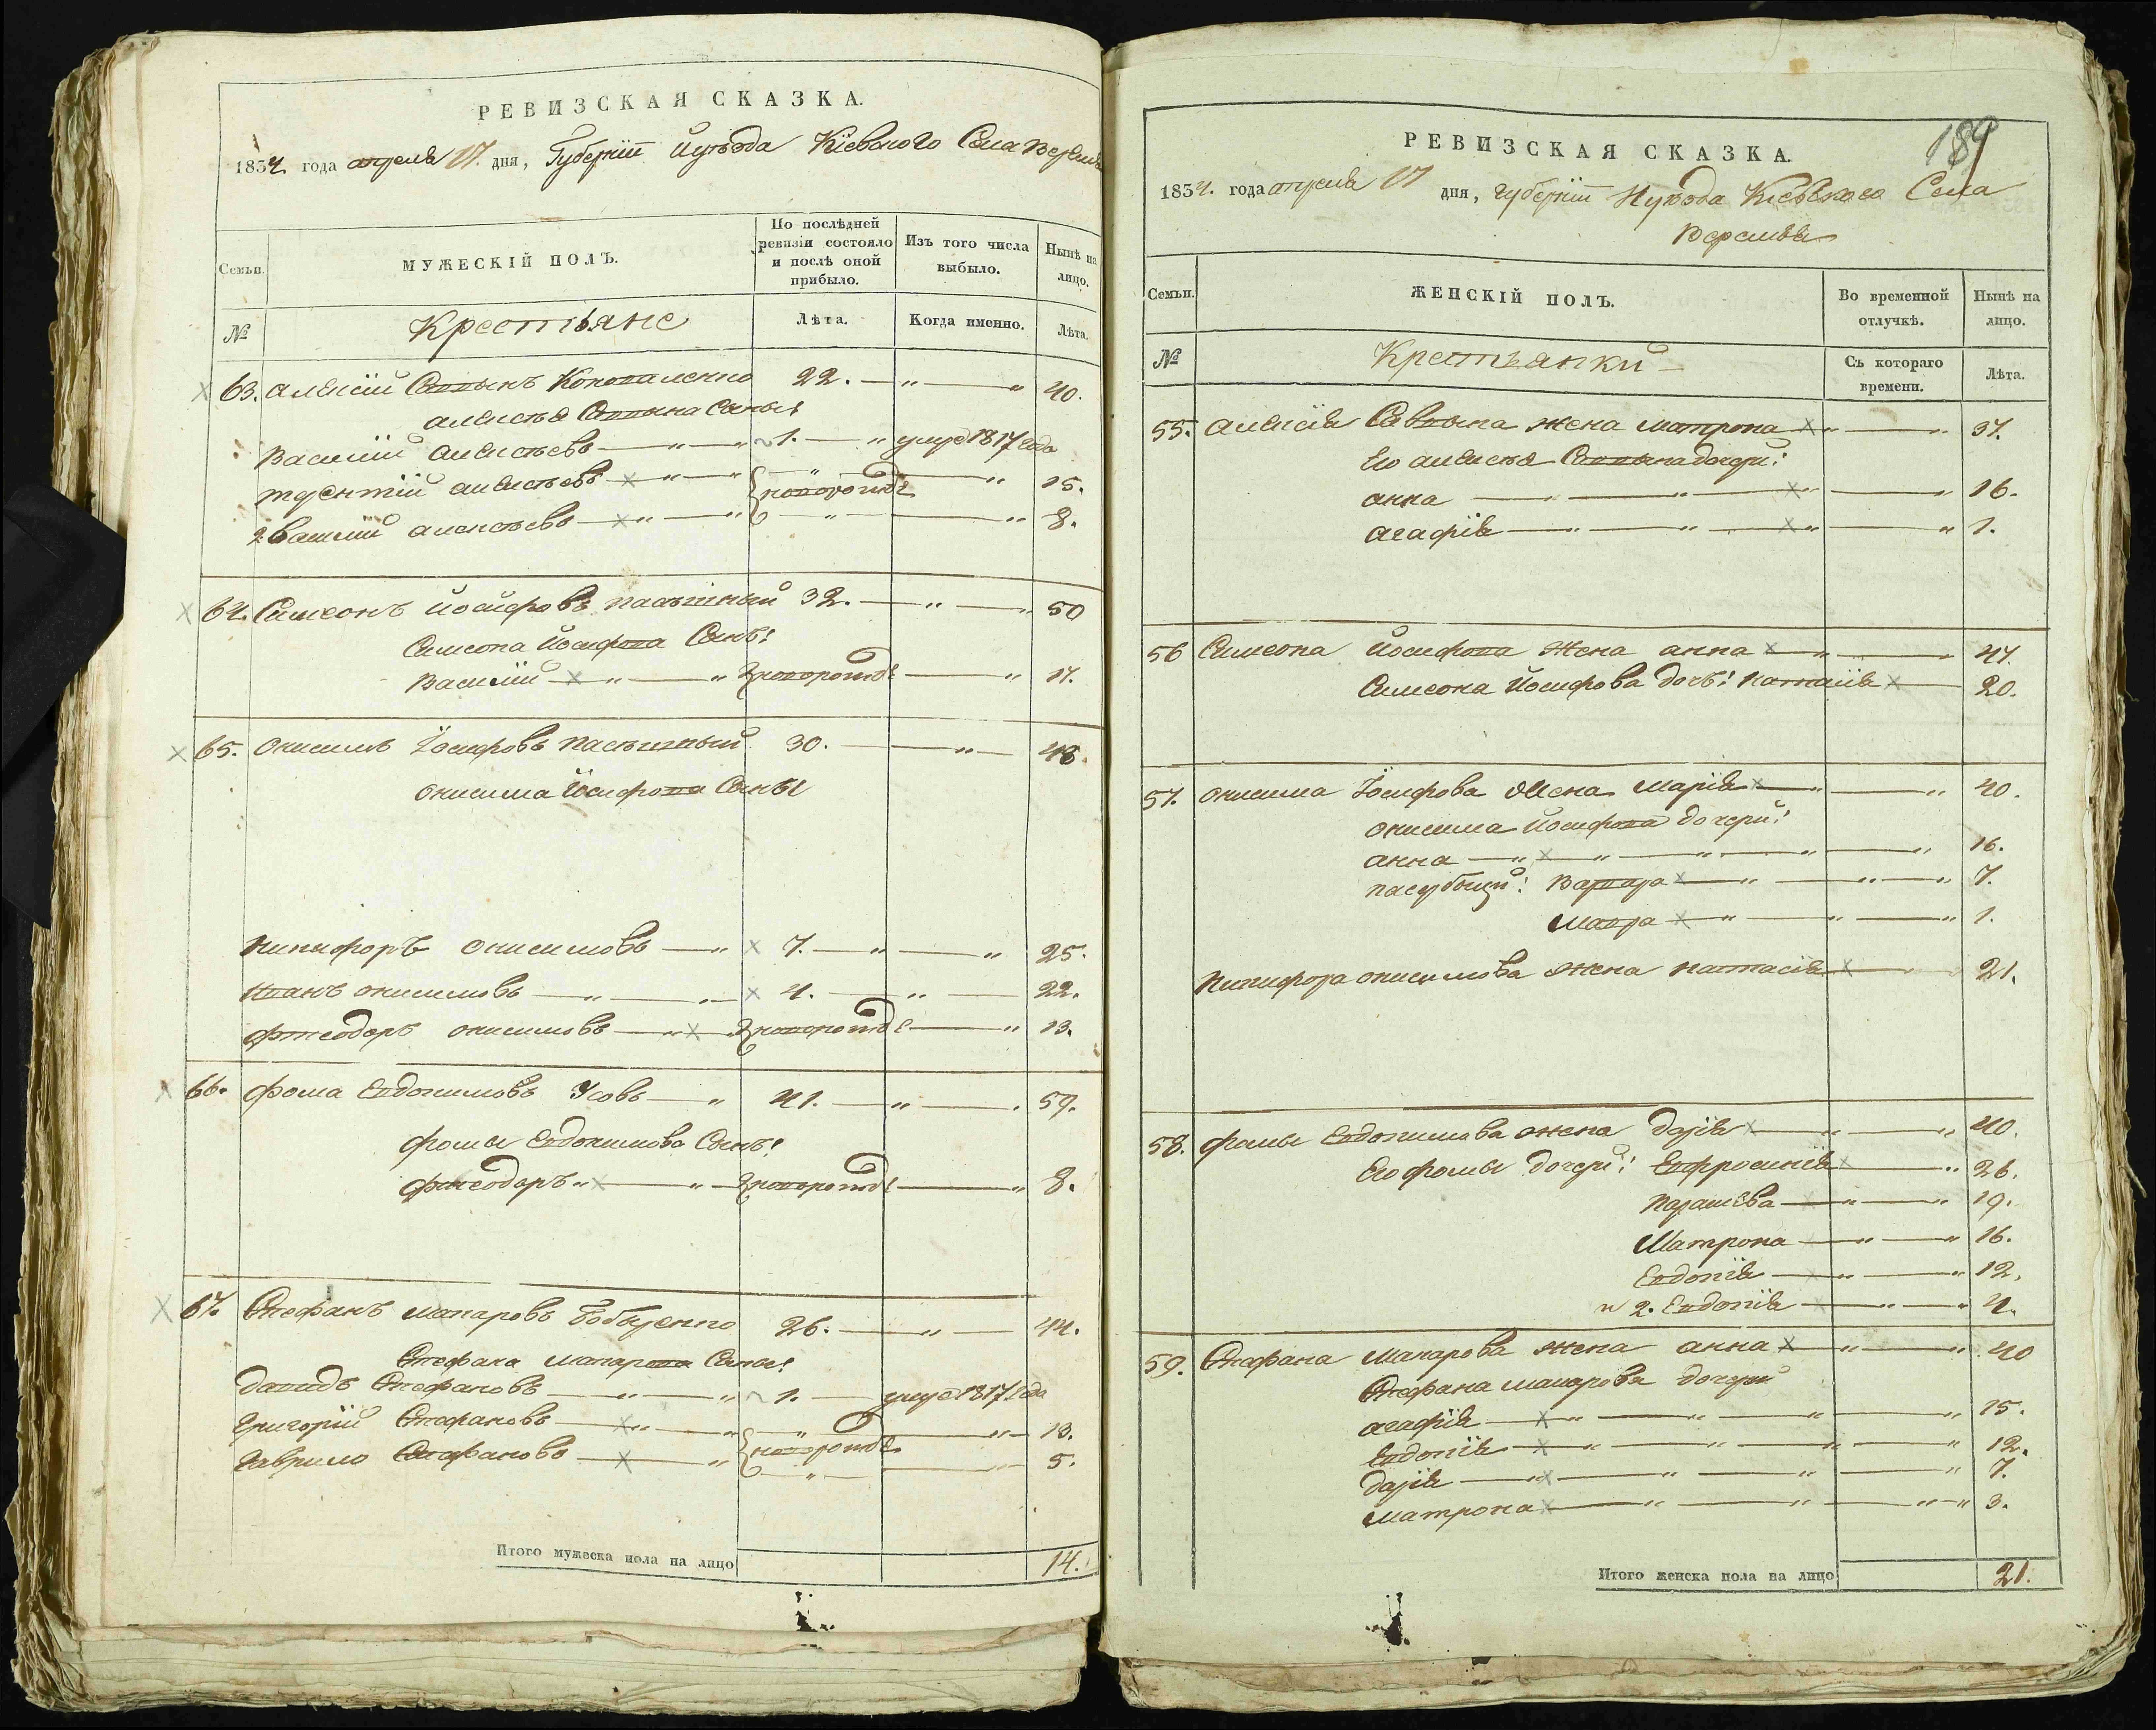 РЕВИЗСКАЯ СКАЗКА.
1834. года апреля 17. дня, Губернiи Иуѣзда Кiевского Села Веремья
Семьи.
МУЖЕСКIЙ ПОЛЪ.
По послѣдней ревизiи состояло и послѣ оной прибыло.
Изъ того числа выбыло.
Нынѣ на лицо.
№
Крестьяне
Лѣта.
Когда именно.
Лѣта.
63. алексiй Саввынъ Коноваленко 22. — „ — „ 40.
алексѣя Саввына Сыны:
Василiй алексѣевъ — „ — „ 1. — „ умре 1817 года
терентiй алексѣевъ — „ — „ новорожде — „ 15.
2. василiй алексѣевъ — „ — „ — „ — „ 8.
64. Симеонъ Иосифовъ пасѣчный 32. — „ — „ 50
Симеона Иосифова Сынъ:
Василiй — „ — „ новорожде — „ 17.
65. онисимъ Iосифовъ пасѣчный 30. — „ — 48.
онисима Iосифова Сыны
Никифоръ онисимовъ — „ 7. — „ — „ 25.
Иванъ онисимовъ — „ — „ 4. — „ — 22.
фтеодоръ онисимовъ — „ новорожде — „ 13.
66. фома Евдокимовъ Усовъ — „ 41. — „ — . 59.
фомы Евдокимова Сынъ:
фтеодоръ „ — „ — новорожде — „ 8.
67. Стефанъ макаровъ бобыренко 26. — „ — 44.
Стефана макарова Сыны:
давидъ Стефановъ — „ — „ 1. — умре 1817 года
Григорiй Стефановъ — „ — „ — „ новорожде — „ — 13.
Гаврило Стефановъ — „ — „ — 5.
Итого мужеска пола на лицо 14.
189
РЕВИЗСКАЯ СКАЗКА.
1834. года апреля 17 дня, губернiи Иуѣзда Кiевского Села
Веремья
Семьи.
ЖЕНСКIЙ ПОЛЪ.
Во временной отлучкѣ.
Нынѣ на лицо.
№
Крестьянки
Съ котораго времени.
Лѣта.
55. алексiя Саввына жена матрона — „ — „ 37.
Его алексѣя Саввына дочери:
анна — „ — „ — „ 16.
агафiя — „ — „ — „ — „ 1.
56 Симеона Иосифова жена анна — „ — „ 47.
Симеона Иосифова дочь: наталiя — 20.
57. онисима Iосифова жена Марiя — „ — „ 40.
онисима Иосифова дочери:
анна — „ — „ — „ — „ — „ 16.
Варвара — „ — „ — „ 7.
Мавра — „ — „ — „ 1.
Никифора онисимова жена настасiя — 21.
58. фомы Евдокимова жена дарiя — „ — „ 40.
Его фомы дочери: Евфросинiя — „ 26.
Параскева — „ — „ 19.
Матрона — „ — „ 16.
Евдокiя — „ — „ 12.
и 2. Евдокiя — „ — „ 4.
59. Стефана Макарова жена анна — „ — „ 40
Стефана макарова дочери
агафiя — „ — „ — „ — „ 15.
Евдокiя — „ — „ — „ — „ 12.
дарiя — „ — „ — „ — „ 7.
матрона — „ — „ — „ — „ 3.
Итого женска пола на лицо 21.